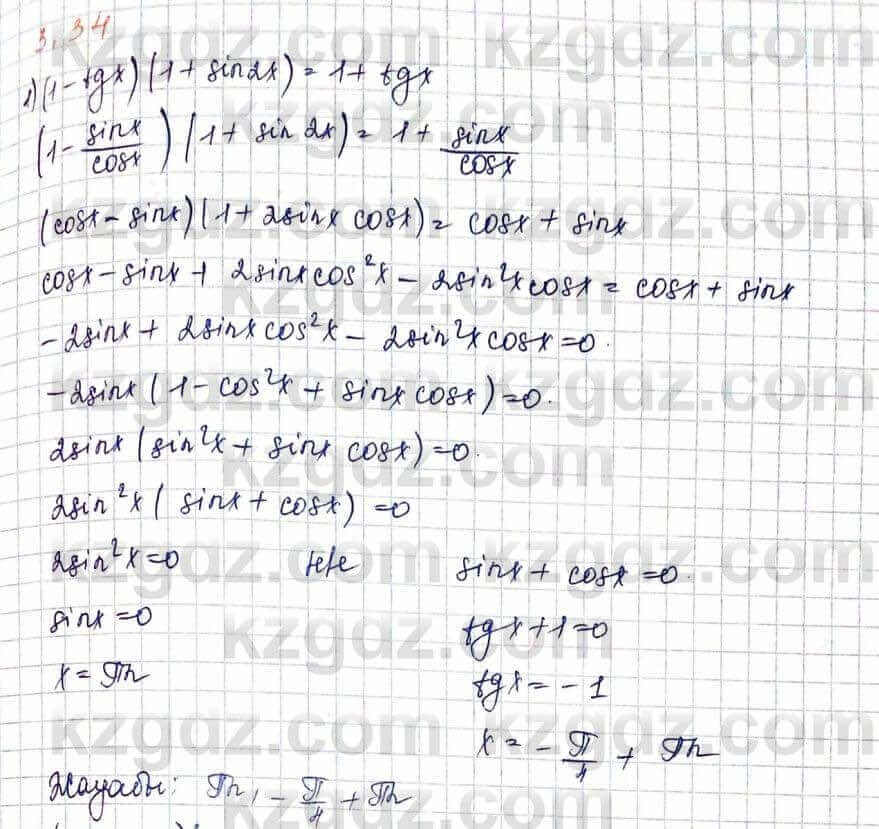 3.34
1) (1 - tgx)(1 + sin2x) = 1 + tgx
(1 - sinx/cosx)(1 + sin 2x) = 1 + sinx/cosx
(cosx - sinx)(1 + 2sinx cosx) = cosx + sinx
cosx - sinx + 2sinxcos²x - 2sin²xcosx = cosx + sinx
-2sinx + 2sinxcos²x - 2sin²xcosx = 0.
-2sinx(1 - cos²x + sinxcosx) = 0.
2sinx(sin²x + sinx cosx) = 0.
2sin²x(sinx + cosx) = 0
2sin²x = 0 нeнe sinx + cosx = 0.
sinx = 0 tgx + 1 = 0
x = πn tgx = -1
x = -π/4 + πn
Жауабы: πn, -π/4 + πn
kzgdz.com